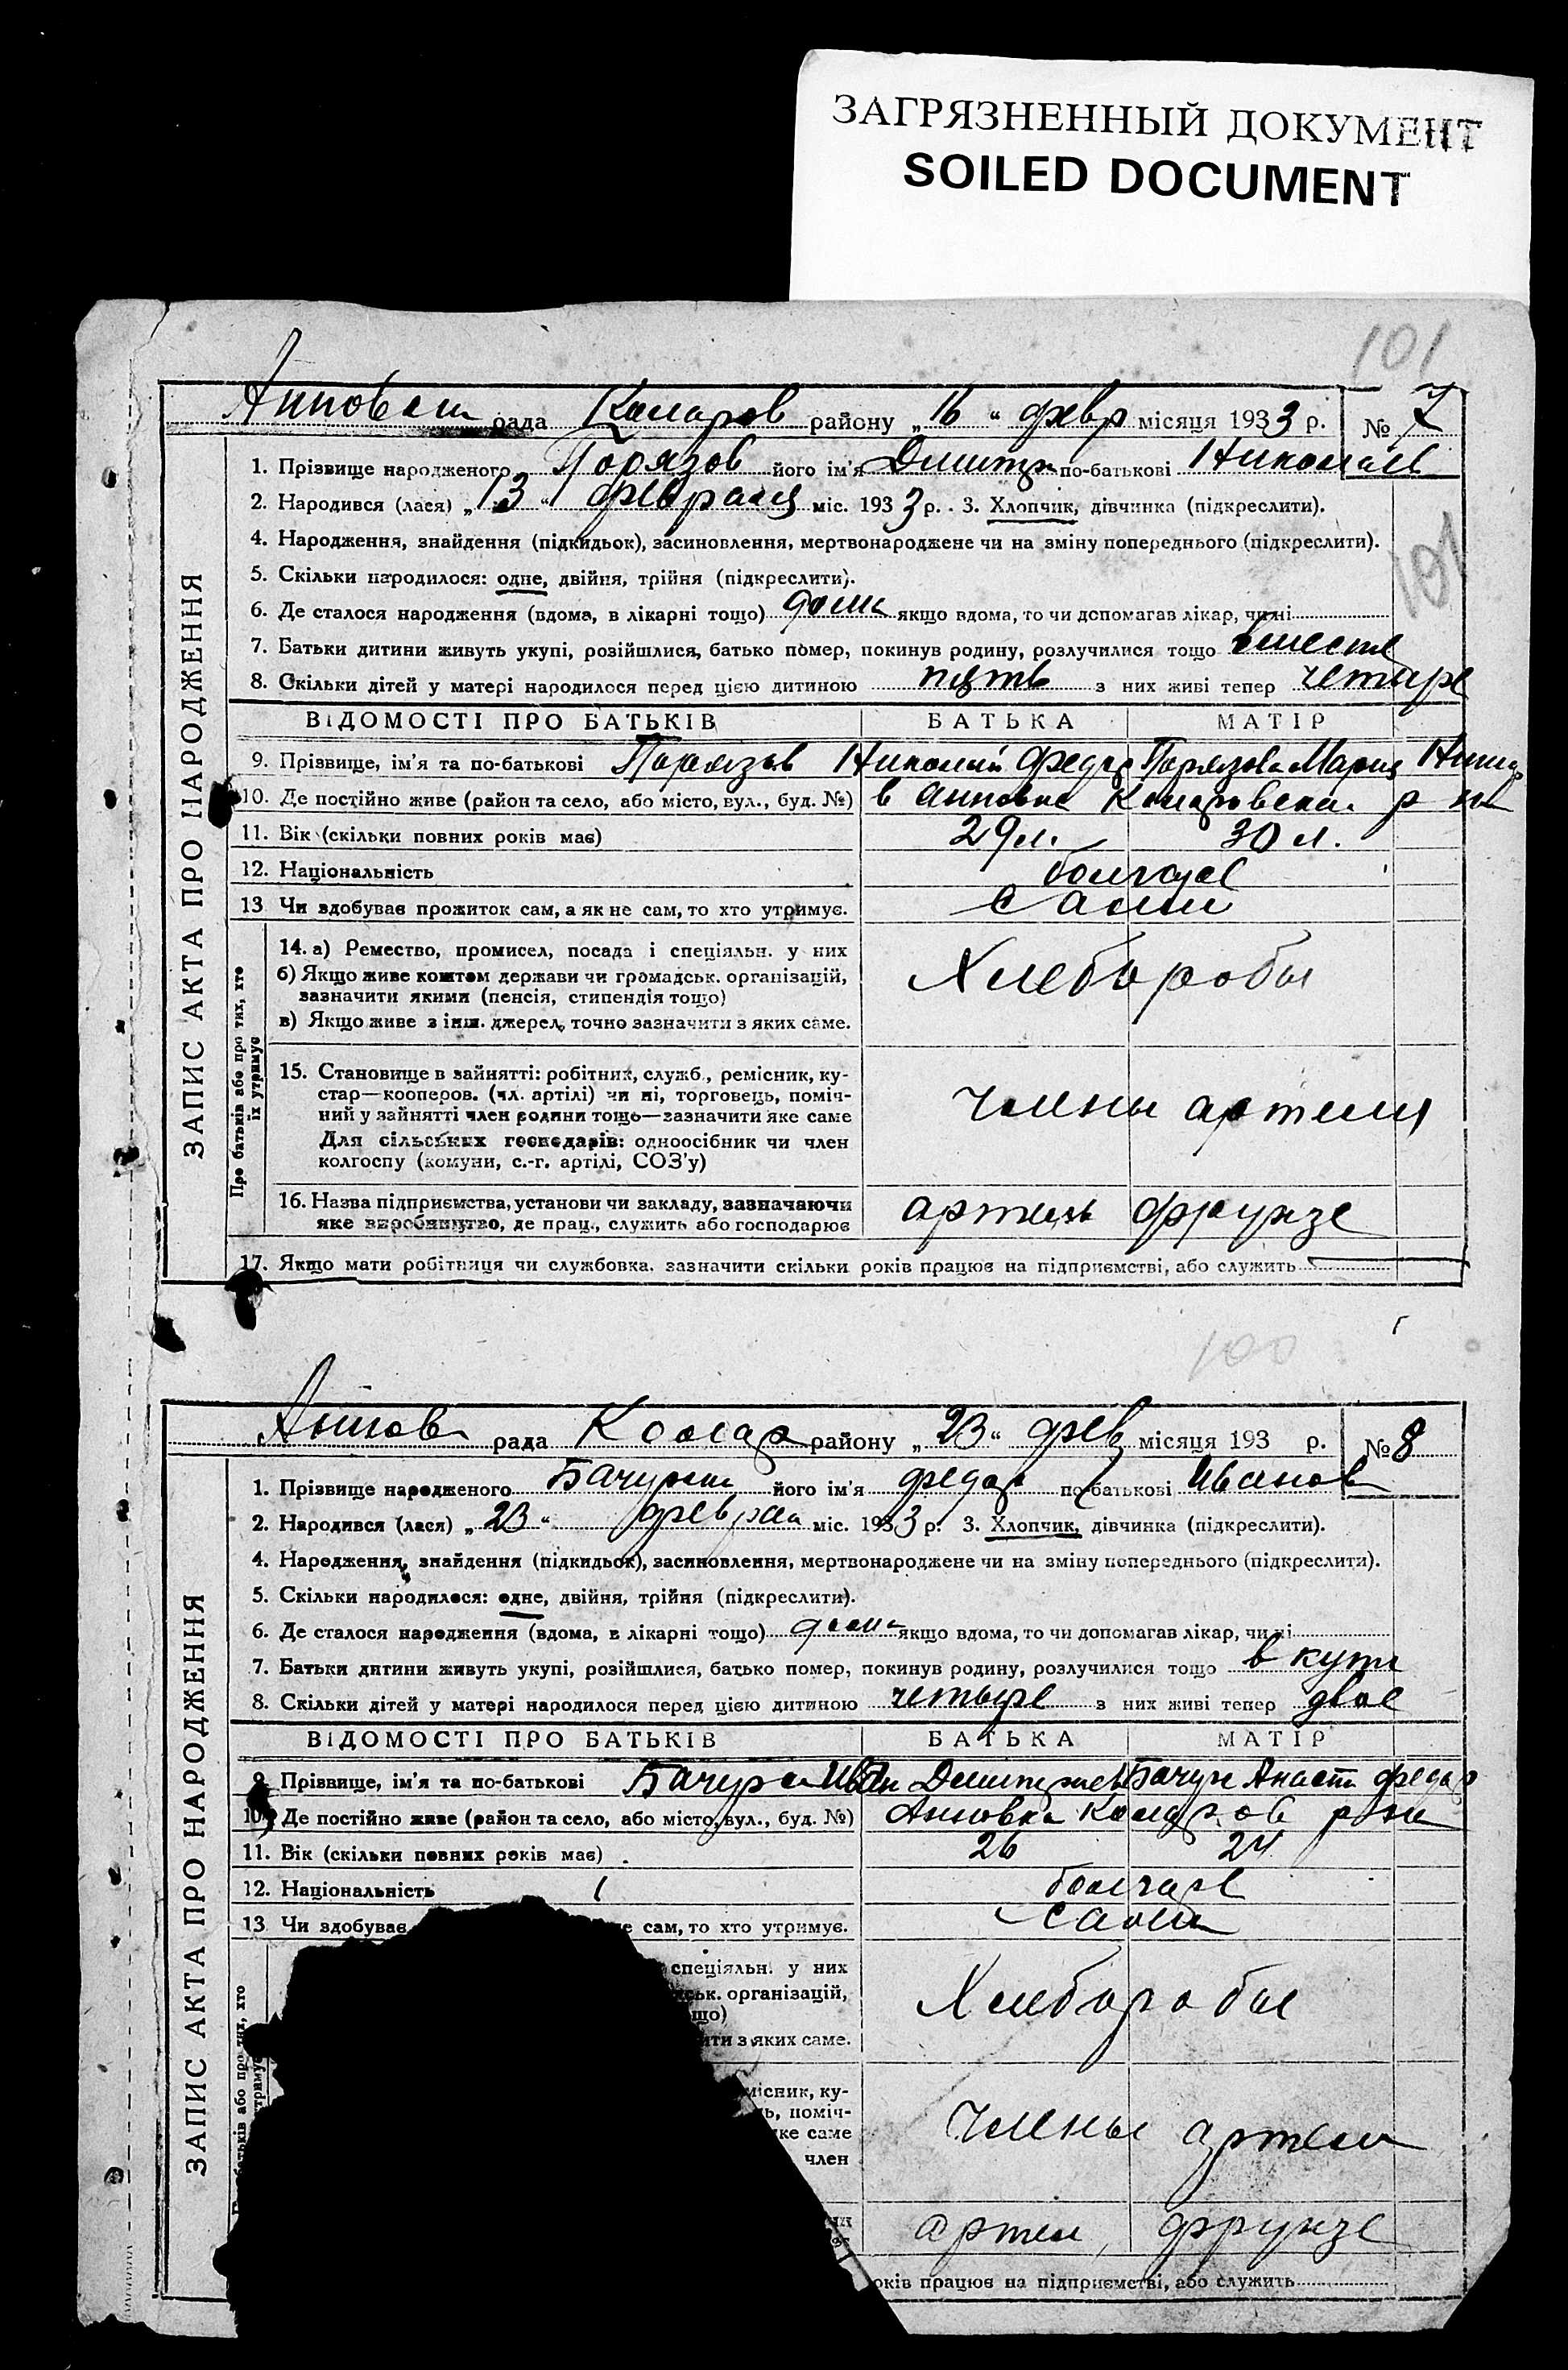 ЗАГРЯЗНЕННЫЙ ДОКУМЕНТ
SOILED DOCUMENT
101
рада Комаров району „16“ февр місяця 1933 р. № 7
101
ЗАПИС АКТА ПРО НАРОДЖЕННЯ
1. Прізвище народженого Порязов його ім'я Дмитр по-батькові Николаев
2. Народився (лася) „13“ февраля міс. 1933 р. 3. Хлопчик, дівчинка (підкреслити).
4. Народження, знайдення (підкидьок), засиновлення, мертвонароджене чи на зміну попереднього (підкреслити).
5. Скільки народилося: одне, двійня, трійня (підкреслити).
6. Де сталося народження (вдома, в лікарні тощо) дома якщо вдома, то чи допомагав лікар, чи ні
7. Батьки дитини живуть укупі, розійшлися, батько помер, покинув родину, розлучилися тощо вместе
8. Скільки дітей у матері народилося перед цією дитиною пять з них живі тепер четыре
ВІДОМОСТІ ПРО БАТЬКІВ БАТЬКА МАТІР
9. Прізвище, ім'я та по-батькові Порязов Николай Федор Порязова Мария
10. Де постійно живе (район та село, або місто, вул., буд. №) в Анновке Комаровска р на
11. Вік (скільки повних років має) 29 л. 30 л.
12. Національність болгаре
13 Чи здобуває прожиток сам, а як не сам, то хто утримує. сами
Про батьків або про тих, хто їх утримує
14. а) Ремество, промисел, посада і спеціяльн. у них
б) Якщо живе коштом держави чи громадськ. організацій,
зазначити якими (пенсія, стипендія тощо)
в) Якщо живе з інш. джерел, точно зазначити з яких саме.
Хлеборобы
15. Становище в зайнятті: робітник, служб., ремісник, ку-
стар—кооперов. (чл. артілі) чи ні, торговець, поміч-
ний у зайнятті член родини тощо—зазначити яке саме
Для сільських господарів: одноосібник чи член
колгоспу (комуни, с.-г. артілі, СОЗ'у)
Члены артели
16. Назва підприємства, установи чи закладу, зазначаючи
яке виробництво, де прац., служить або господарює
артель Фрунзе
17. Якщо мати робітниця чи службовка, зазначити скільки років працює на підприємстві, або служить
100
рада Комар району „23“ фев місяця 193 р. № 8
ЗАПИС АКТА ПРО НАРОДЖЕННЯ
1. Прізвище народженого його ім'я Федор по-батькові Иванов
2. Народився (лася) „23“ феврал міс. 1933 р. 3. Хлопчик, дівчинка (підкреслити).
4. Народження, знайдення (підкидьок), засиновлення, мертвонароджене чи на зміну попереднього (підкреслити).
5. Скільки народилося: одне, двійня, трійня (підкреслити).
6. Де сталося народження (вдома, в лікарні тощо) дома якщо вдома, то чи допомагав лікар, чи ні
7. Батьки дитини живуть укупі, розійшлися, батько помер, покинув родину, розлучилися тощо в купи
8. Скільки дітей у матері народилося перед цією дитиною четыре з них живі тепер двое
ВІДОМОСТІ ПРО БАТЬКІВ БАТЬКА МАТІР
9. Прізвище, ім'я та по-батькові Иван Федор
10. Де постійно живе (район та село, або місто, вул., буд. №) Анновка Комаров р на
11. Вік (скільки повних років має) 26 24
12. Національність болгаре
13 Чи здобуває сам, то хто утримує. сами
спеціяльн. у них
організацій,
з яких саме.
Хлеборобы
ку-
поміч-
саме
член
Члены артели
артел Фрунзе
працює на підприємстві, або служить